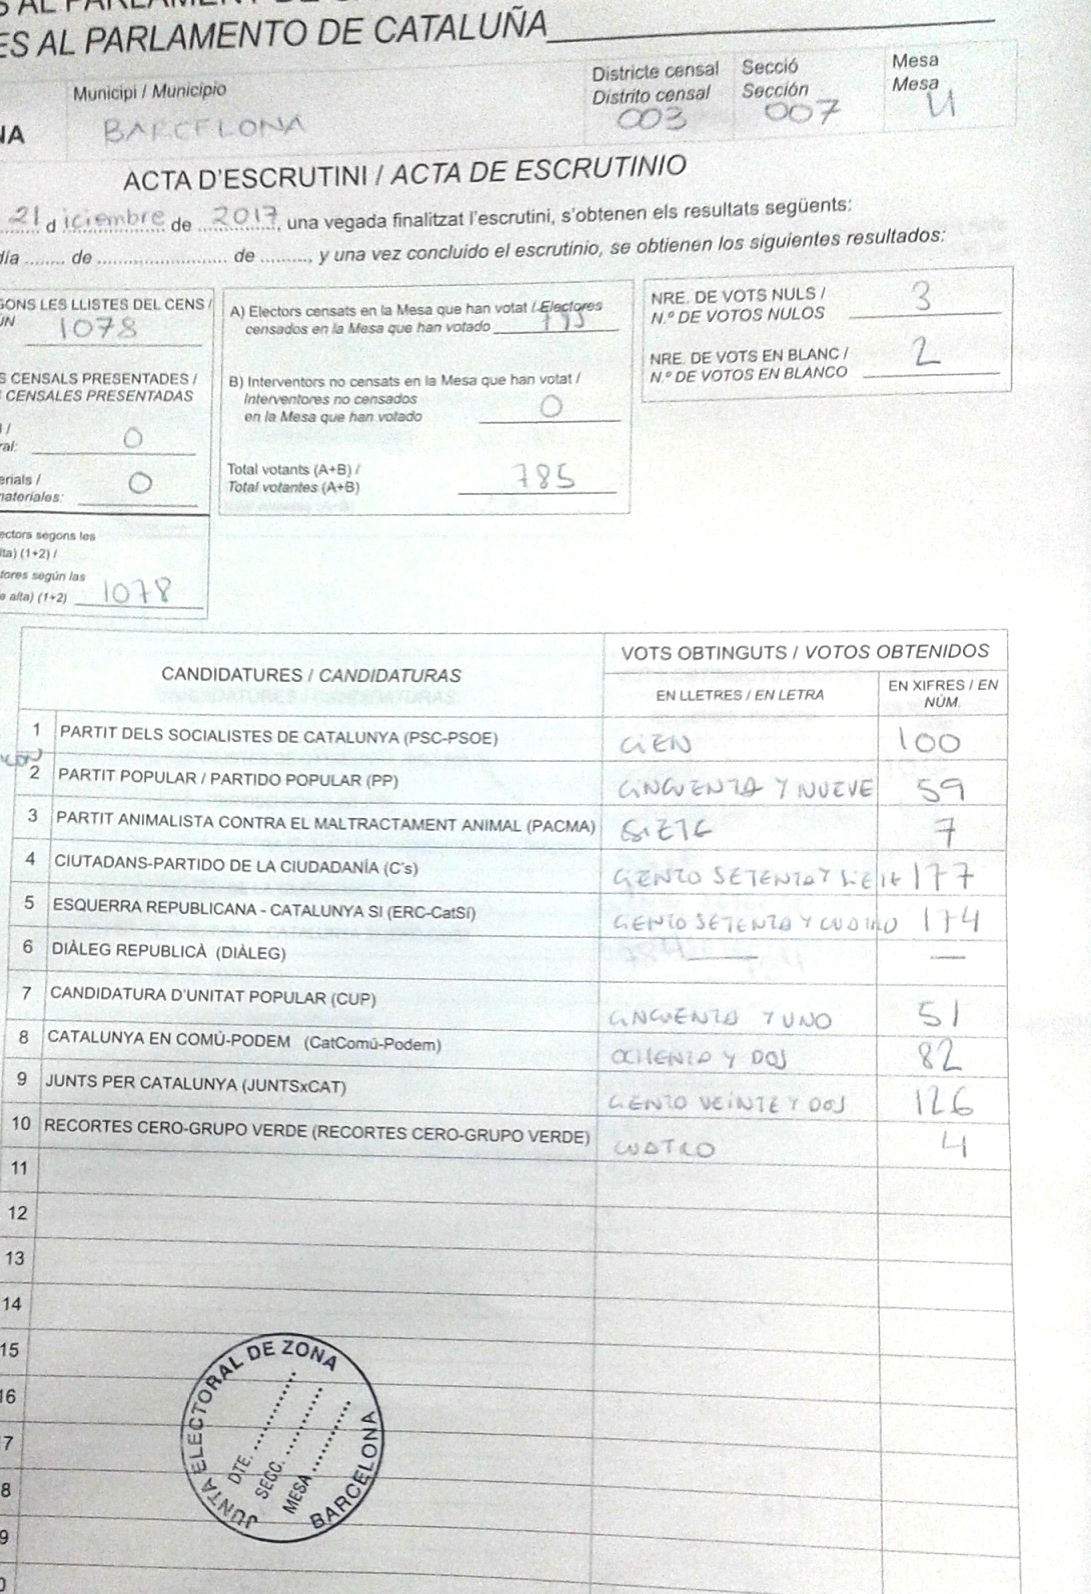 ES AL PARLAMENTO DE CATALUÑA
Municipi / Municipio
BARCELONA
Districte censal
Distrito censal
003
Secció
Sección
007
Mesa
Mesa
U
NA
ACTA D'ESCRUTINI / ACTA DE ESCRUTINIO
21 diciembre de 2017, una vegada finalitzat l'escrutini, s'obtenen els resultats següents:
día ........ de ........................ de ........., y una vez concluido el escrutinio, se obtienen los siguientes resultados:
GONS LES LLISTES DEL CENS /
ÚN 1078
S CENSALS PRESENTADES /
CENSALES PRESENTADAS
l /
ral: 0
erials /
materiales: 0
ectors segons les
lta) (1+2) /
tores según las
e alta) (1+2) 1078
A) Electors censats en la Mesa que han votat / Electores
censados en la Mesa que han votado
B) Interventors no censats en la Mesa que han votat /
Interventores no censados
en la Mesa que han votado 0
Total votants (A+B) /
Total votantes (A+B) 785
NRE. DE VOTS NULS /
N.º DE VOTOS NULOS 3
NRE. DE VOTS EN BLANC /
N.º DE VOTOS EN BLANCO 2
CANDIDATURES / CANDIDATURAS
VOTS OBTINGUTS / VOTOS OBTENIDOS
EN LLETRES / EN LETRA
EN XIFRES / EN
NÚM.
1 PARTIT DELS SOCIALISTES DE CATALUNYA (PSC-PSOE) CIEN 100
2 PARTIT POPULAR / PARTIDO POPULAR (PP) CINCUENTA Y NUEVE 59
3 PARTIT ANIMALISTA CONTRA EL MALTRACTAMENT ANIMAL (PACMA) SIETE 7
4 CIUTADANS-PARTIDO DE LA CIUDADANÍA (C's) CIENTO SETENTA Y SIETE 177
5 ESQUERRA REPUBLICANA - CATALUNYA SI (ERC-CatSí) CIENTO SETENTA Y CUATRO 174
6 DIÀLEG REPUBLICÀ (DIÀLEG) — —
7 CANDIDATURA D'UNITAT POPULAR (CUP) CINCUENTA Y UNO 51
8 CATALUNYA EN COMÚ-PODEM (CatComú-Podem) OCHENTA Y DOS 82
9 JUNTS PER CATALUNYA (JUNTSxCAT) CIENTO VEINTE Y DOS 126
10 RECORTES CERO-GRUPO VERDE (RECORTES CERO-GRUPO VERDE) CUATRO 4
11
12
13
14
15
16
7
8
9
JUNTA ELECTORAL DE ZONA
DTE. ............
SECC. ............
MESA ............
BARCELONA